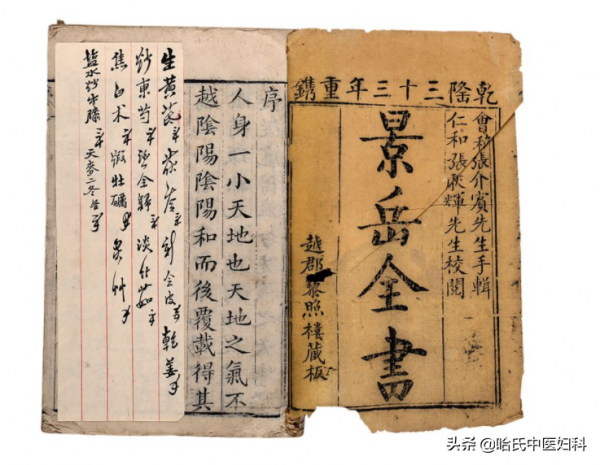 乾隆三十三年重鐫
會稽張介賓先生手輯
仁和張輝先生校閱
景岳全書
越郡黎照樓藏板
序
人身一小天地也天地之氣不
越陰陽陰陽和而後覆載得其
生黃芪 乾姜
炒東芍 全歸 淡竹茹
焦白术 煅牡礪
盐水炒牛膝 天麥二冬各
头条 @哈氏中医妇科